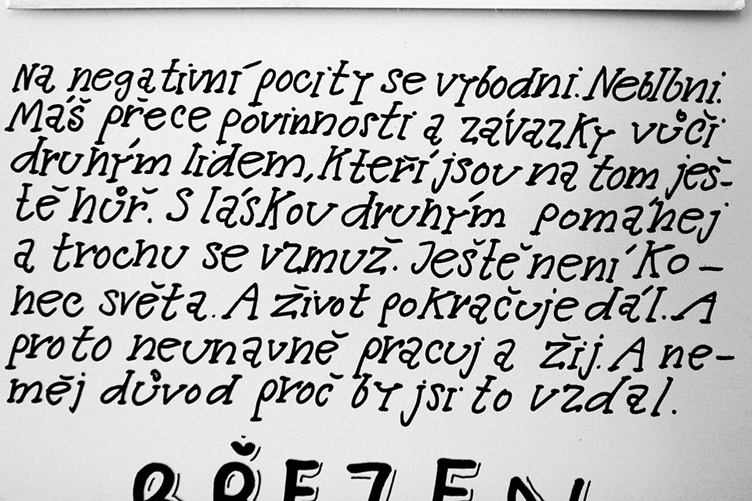 Na negativní pocity se vybodni. Neblbni.
Máš přece povinnosti a závazky vůči
druhým lidem, kteří jsou na tom ješ-
tě hůř. S láskou druhým pomáhej
a trochu se vzmuž. Ještě není ko-
nec světa. A život pokračuje dál. A
proto neunavně pracuj a žij. A ne-
měj důvod proč by jsi to vzdal.
BŘEZEN